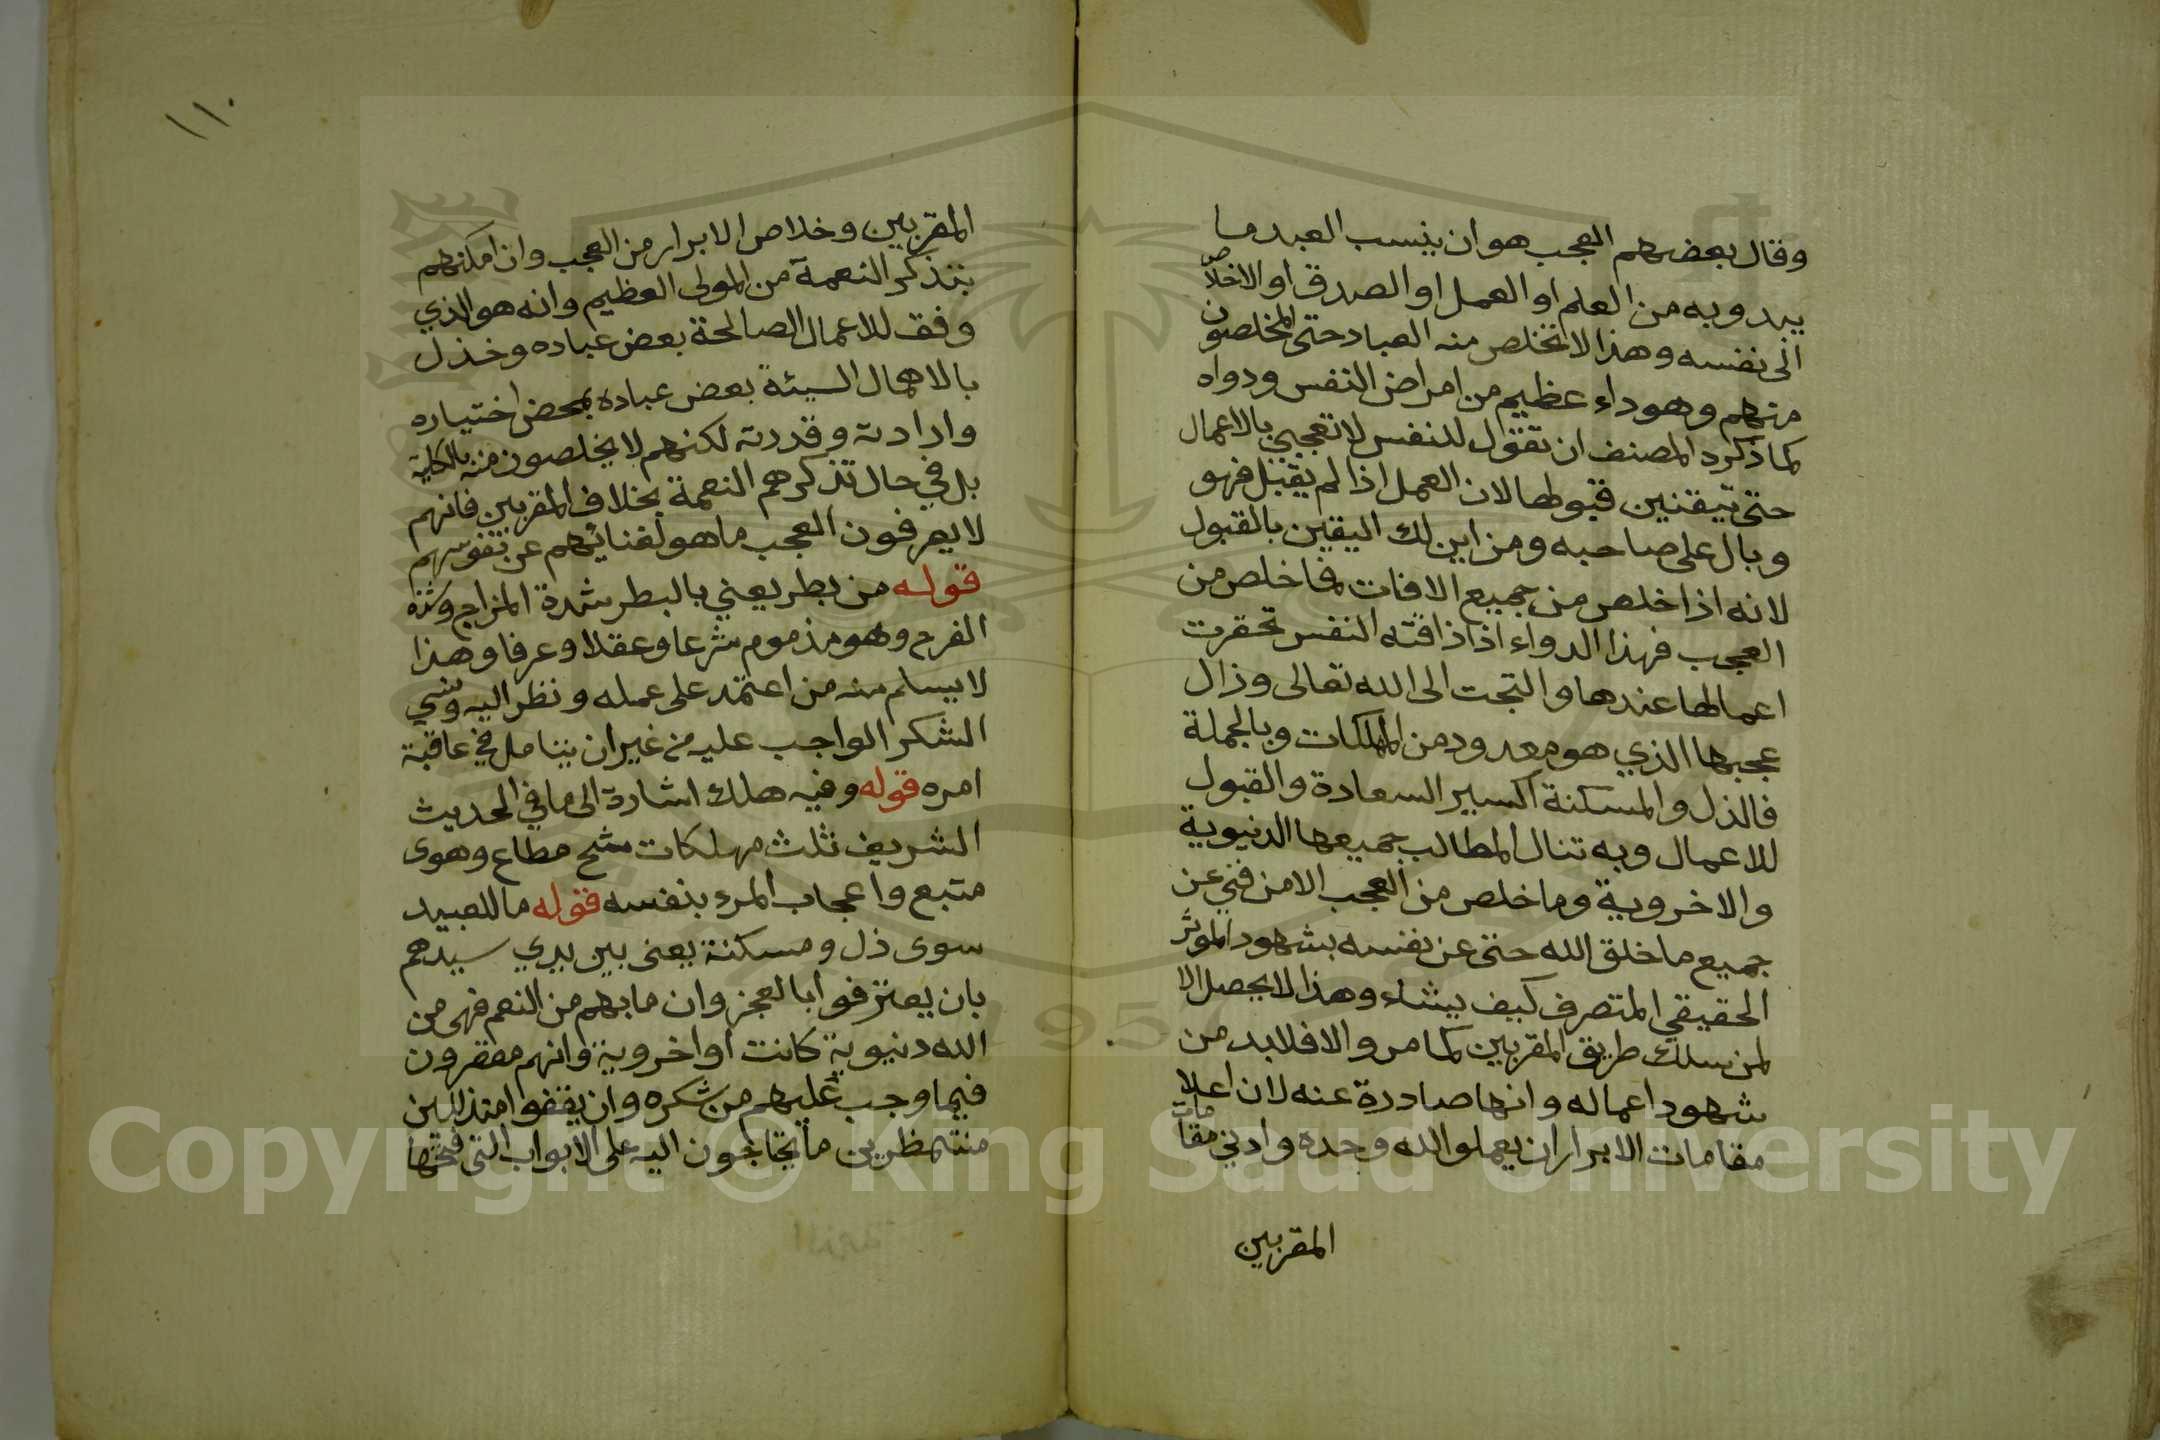 وقال بعضهم العجب هو ان ينسب العبد ما
يبدو به من العلم او العمل او الصدق او الاخلاص
الى نفسه وهذا لا يتخلص منه العباد حتى المخلصون
منهم وهو داء عظيم من امراض النفس ودواه
كما ذكره المصنف ان تقول للنفس لا تعجبي بالاعمال
حتى تتيقنين قبولها لان العمل اذا لم يقبل فهو
وبال على صاحبه ومن اين لك اليقين بالقبول
لانه اذا خلص من جميع الافات فما خلص من
العجب فهذا الدواء اذا ذاقته النفس تحقرت
اعمالها عندها والتجت الى الله تعالى وزال
عجبها الذي هو معدود من المهلكات وبالجملة
فالذل والمسكنة اكسير السعادة والقبول
للاعمال وبه تنال المطالب جميعها الدنيوية
والاخروية وما خلص من العجب الا من فني عن
جميع ما خلق الله حتى عن نفسه بشهود المؤثر
الحقيقي المتصرف كيف يشاء وهذا لا يحصل الا
لمن سلك طريق المقربين كما مر والا فلا بد من
شهود اعماله وانها صادرة عنه لان اعلا
مقامات الابرار ان يعملوا لله وحده وادنى مقامات
المقربين
١١٠
المقربين وخلاص الابرار من العجب وان امكنهم
بتذكر النعمة من المولى العظيم وانه هو الذي
وفق للاعمال الصالحة بعض عباده وخذل
بالاهمال السيئة بعض عباده بمحض اختياره
وارادته وقدرته لكنهم لا يخلصون منه بالكلية
بل في حال تذكرهم النعمة بخلاف المقربين فانهم
لا يعرفون العجب ما هو لفنائهم عن نفوسهم
قوله من بطر يعني بالبطر شدة المزاح وكثرة
الفرح وهو مذموم شرعا وعقلا وعرفا وهذا
لا يسلم منه من اعتمد على عمله ونظر اليه ونسي
الشكر الواجب عليه من غير ان يتامل في عاقبة
امره قوله وفيه هلك اشارة الى ما في الحديث
الشريف ثلث مهلكات شح مطاع وهوى
متبع واعجاب المرء بنفسه قوله ما للعبيد
سوى ذل ومسكنة يعني بين يدي سيدهم
بان يعترفوا بالعجز وان ما بهم من النعم فهي من
الله دنيوية كانت او اخروية وانهم مقصرون
فيما وجب عليهم من شكره وان يقفوا متذللين
منتظرين ما يحتاجون اليه على الابواب التي فتحها
Copyright © King Saud University
1957